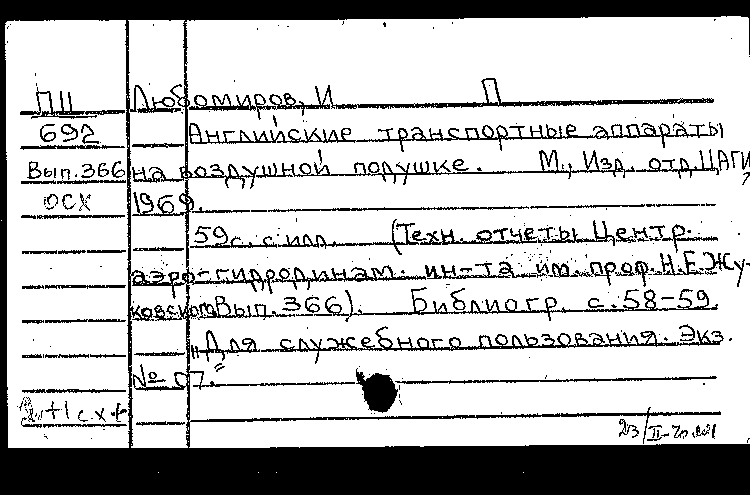 ПII Любомиров, И П
692 Английские транспортные аппараты
Вып.366 на воздушной подушке. М., Изд. отд. ЦАГИ,
ОСХ 1969.
59с. с илл. (Техн. отчеты Центр.
аэро-гидродинам. ин-та им. проф. Н.Е.Жу-
ковского Вып. 366). Библиогр. с.58-59.
„Для служебного пользования. Экз.
№ 07."
2/II-70